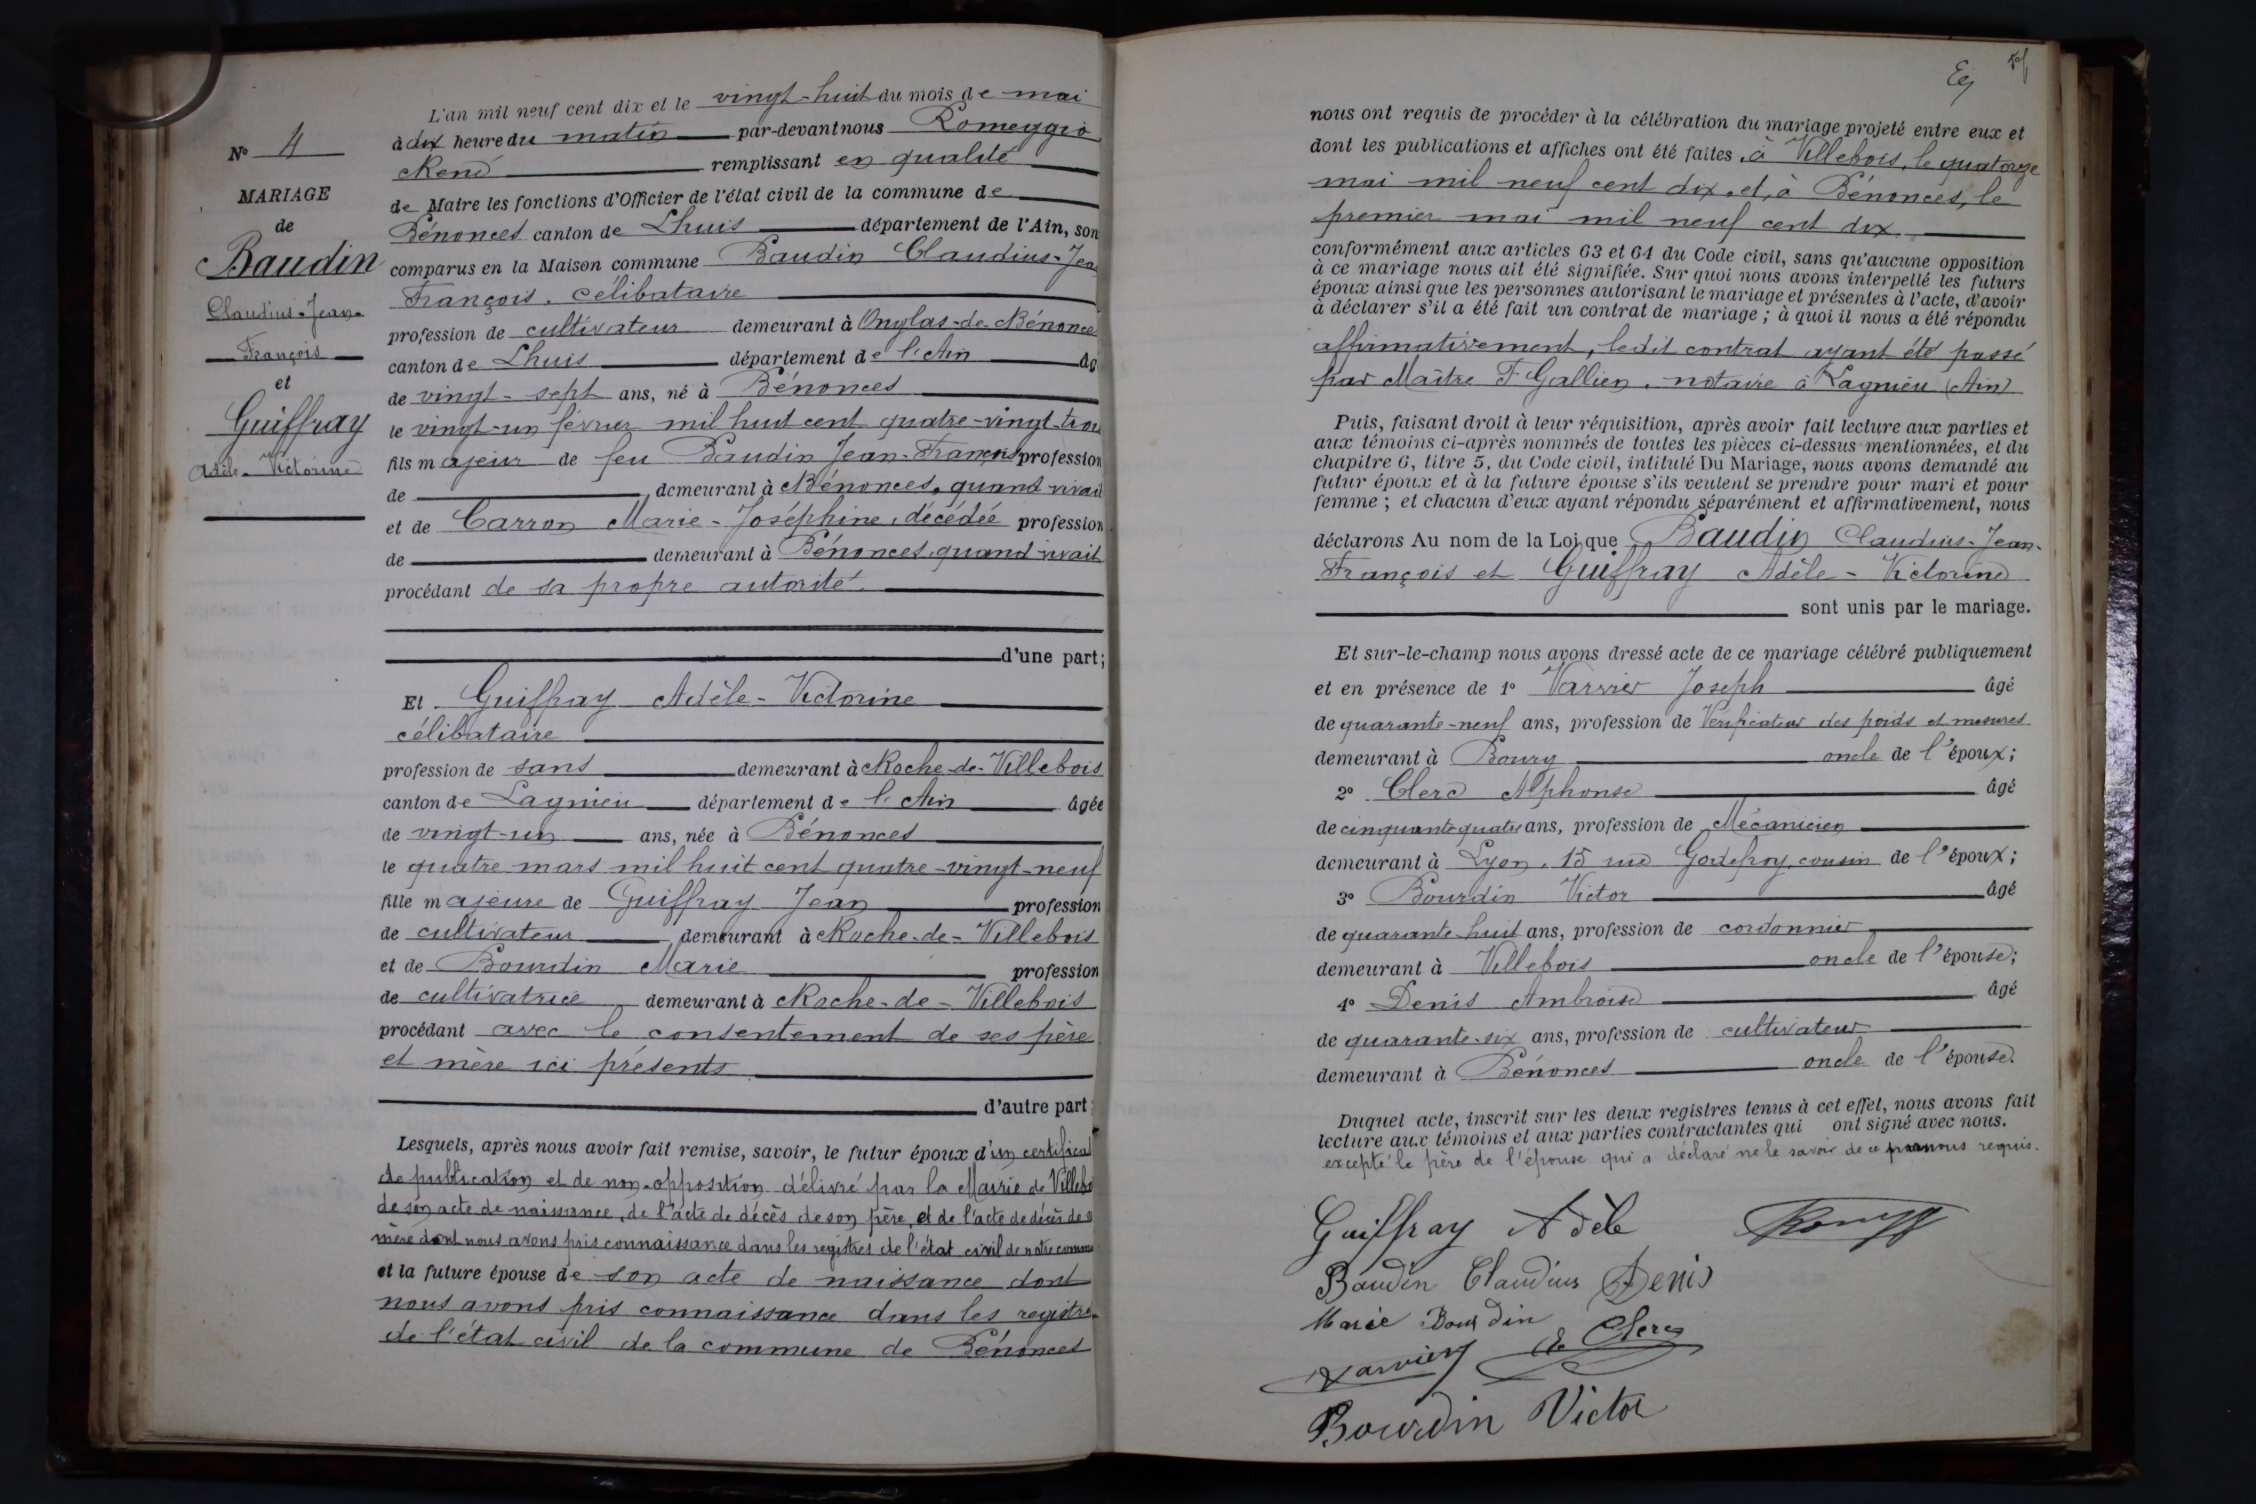 N° 4
MARIAGE
de
Baudin
Claudius-Jean-
François
et
Guiffray
Adèle-Victorine
L'an mil neuf cent dix et le vingt-huit du mois de mai
à dix heure du matin par-devant nous Romeggio
René remplissant en qualité
de Maire les fonctions d'Officier de l'état civil de la commune de
Bénonces canton de Lhuis département de l'Ain, son
comparus en la Maison commune Baudin Claudius-Jea
François, célibataire
profession de cultivateur demeurant à Onglas-de-Bénonce
canton de Lhuis département de l'Ain âg
de vingt-sept ans, né à Bénonces
le vingt-un février mil huit cent quatre-vingt-troi
fils majeur de feu Baudin Jean-François profession
de demeurant à Bénonces, quand vivait
et de Carron Marie-Joséphine, décédée profession
de demeurant à Bénonces quand vivait
procédant de sa propre autorité.
d'une part;
Et Guiffray Adèle-Victorine
célibataire
profession de sans demeurant à Roche-de-Villebois
canton de Lagnieu département de l'Ain âgée
de vingt-un ans, née à Bénonces
le quatre mars mil huit cent quatre-vingt-neuf
fille majeure de Guiffray Jean profession
de cultivateur demeurant à Roche-de-Villebois
et de Bourdin Marie profession
de cultivatrice demeurant à Roche-de-Villebois
procédant avec le consentement de ses père
et mère ici présents
d'autre part;
Lesquels, après nous avoir fait remise, savoir, le futur époux d'un certificat
de publication et de non-opposition délivré par la Mairie de Villebo
de son acte de naissance, de l'acte de décès de son père, et de l'acte de décès de s
mère dont nous avons pris connaissance dans les registres de l'état civil de notre commu
et la future épouse de son acte de naissance dont
nous avons pris connaissance dans les registre
de l'état civil de la commune de Bénonces
nous ont requis de procéder à la célébration du mariage projeté entre eux et
dont les publications et affiches ont été faites, à Villebois, le quatorze
mai mil neuf cent dix, et, à Bénonces, le
premier mai mil neuf cent dix.
conformément aux articles 63 et 64 du Code civil, sans qu'aucune opposition
à ce mariage nous ait été signifiée. Sur quoi nous avons interpellé les futurs
époux ainsi que les personnes autorisant le mariage et présentes à l'acte, d'avoir
à déclarer s'il a été fait un contrat de mariage; à quoi il nous a été répondu
affirmativement, ledit contrat ayant été passé
par Maître F Gallien, notaire à Lagnieu (Ain)
Puis, faisant droit à leur réquisition, après avoir fait lecture aux parties et
aux témoins ci-après nommés de toutes les pièces ci-dessus mentionnées, et du
chapitre 6, titre 5, du Code civil, intitulé Du Mariage, nous avons demandé au
futur époux et à la future épouse s'ils veulent se prendre pour mari et pour
femme; et chacun d'eux ayant répondu séparément et affirmativement, nous
déclarons Au nom de la Loi que Baudin Claudius-Jean-
François et Guiffray Adèle-Victorine
sont unis par le mariage.
Et sur-le-champ nous avons dressé acte de ce mariage célébré publiquement
et en présence de 1° Varvier Joseph âgé
de quarante-neuf ans, profession de Vérificateur des poids et mesures
demeurant à Bourg oncle de l'époux;
2° Clerc Alphonse âgé
de cinquante quatre ans, profession de Mécanicien
demeurant à Lyon, 15 rue Godefroy, cousin de l'époux;
3° Bourdin Victor âgé
de quarante-huit ans, profession de cordonnier
demeurant à Villebois oncle de l'épouse;
4° Denis Ambroise âgé
de quarante-six ans, profession de cultivateur
demeurant à Bénonces oncle de l'épouse.
Duquel acte, inscrit sur les deux registres tenus à cet effet, nous avons fait
lecture aux témoins et aux parties contractantes qui ont signé avec nous.
excepté le père de l'épouse qui a déclaré ne le savoir de ce par nous requis.
Guiffray Adèle
Baudin Claudius Denis
Marie Bourdin
Varvier A Clerc
Bourdin Victor